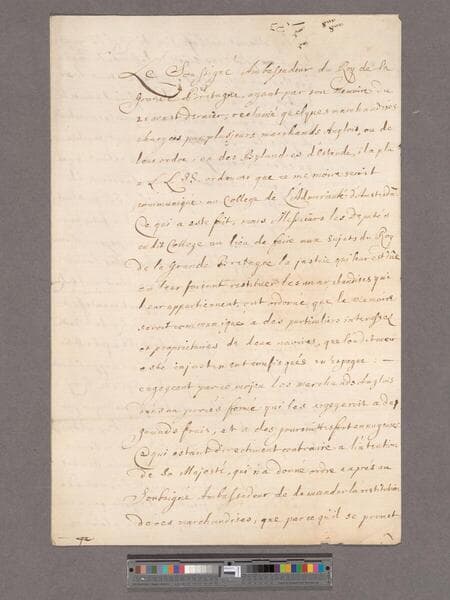 Le Soussigné Ambassadeur du Roy de la
Grande Bretagne, ayant par son Memoire du
dernier, reclamé quelques marchandises
chargées par plusieurs marchands Anglois, ou de
leur ordre, en des d'Ostende, il a plu
a L.L. ordonner que ce memoire seroit
communiqué au College de L'Admirauté
Ce qui a esté fait, mais Messieurs les Deputés
au dit College au lieu de faire aux sujets du Roy
de la Grande Bretagne la justice qui leur est due
en leur faisant restituer les marchandises qui
leur appartiennent, ont ordonné que le memoire
seroit communiqué a des particuliers interessez
et proprietaires de deux navires, que l'on dit avoir
esté injustement confisqués en Espagne :
engageent par ce moien les marchands Anglois
dans un procés formé qui les exposeroit a de
grands frais, et a des poursuittes fort ennuyeuses
Ce qui estant directement contraire a l'intention
de Sa Majesté, qui n'a donné ordre expres au
Soubsigné Ambassadeur de demander la restitution
de ces marchandises, que parce qu'il se promet